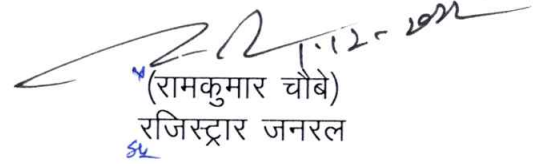 1.12.2022
(रामकुमार चौबे)
रजिस्ट्रार जनरल